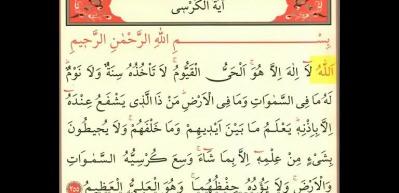 اٰيَةُ الْكُرْسِى
بِسْـــــــمِ اللّٰهِ الرَّحْمٰنِ الرَّحِيمِ
اَللّٰهُ لَآ اِلٰهَ اِلَّا هُوَۚ اَلْحَىُّ الْقَيُّومُۚ لَا تَأْخُذُهُ سِنَةٌ وَلَا نَوْمٌۜ
لَهُ مَا فِى السَّمٰوَاتِ وَمَا فِى الْاَرْضِۜ مَنْ ذَا الَّذِى يَشْفَعُ عِنْدَهُٓ
اِلَّا بِاِذْنِهِۜ يَعْلَمُ مَا بَيْنَ اَيْدِيهِمْ وَمَا خَلْفَهُمْۚ وَلَا يُحِيطُونَ
بِشَىْءٍ مِنْ عِلْمِهِٓ اِلَّا بِمَا شَٓاءَۚ وَسِعَ كُرْسِيُّهُ السَّمٰوَاتِ
وَالْاَرْضَۚ وَلَا يَؤُدُهُ حِفْظُهُمَاۚ وَهُوَ الْعَلِىُّ الْعَظِيمُ ﴿٢٥٥﴾